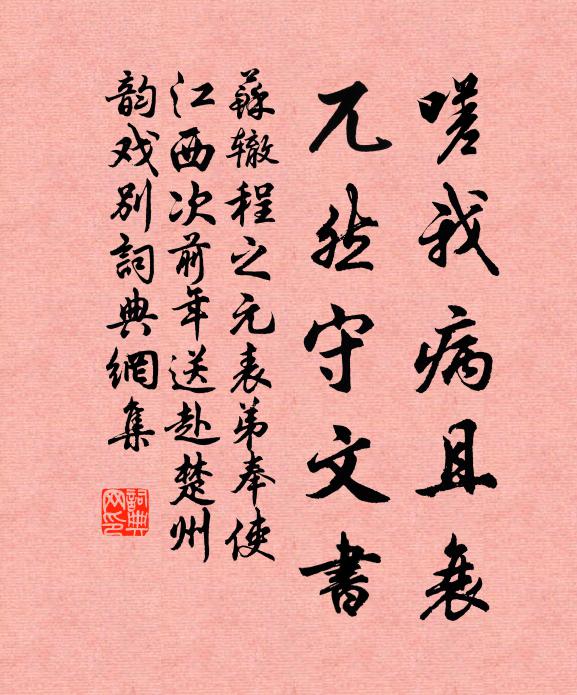 嗟我病且衰
兀然守文書
蘇辙程之元表弟奉使
江西次前年送赴楚州
韵戏别詞典網集
詞典网印